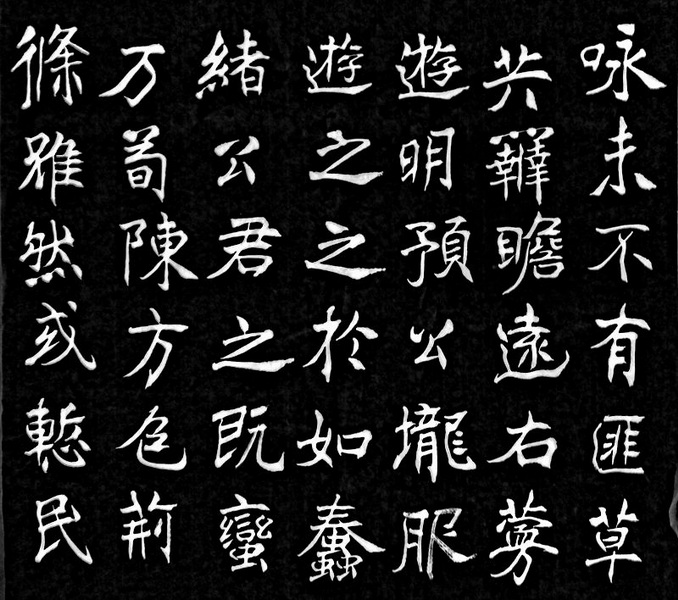 咏未不有匪草
共瞻遠右
遊明預公壠服
遊之之於如蠢
緒公君之既蠻
万荀陳方荊
條雅然或慙民